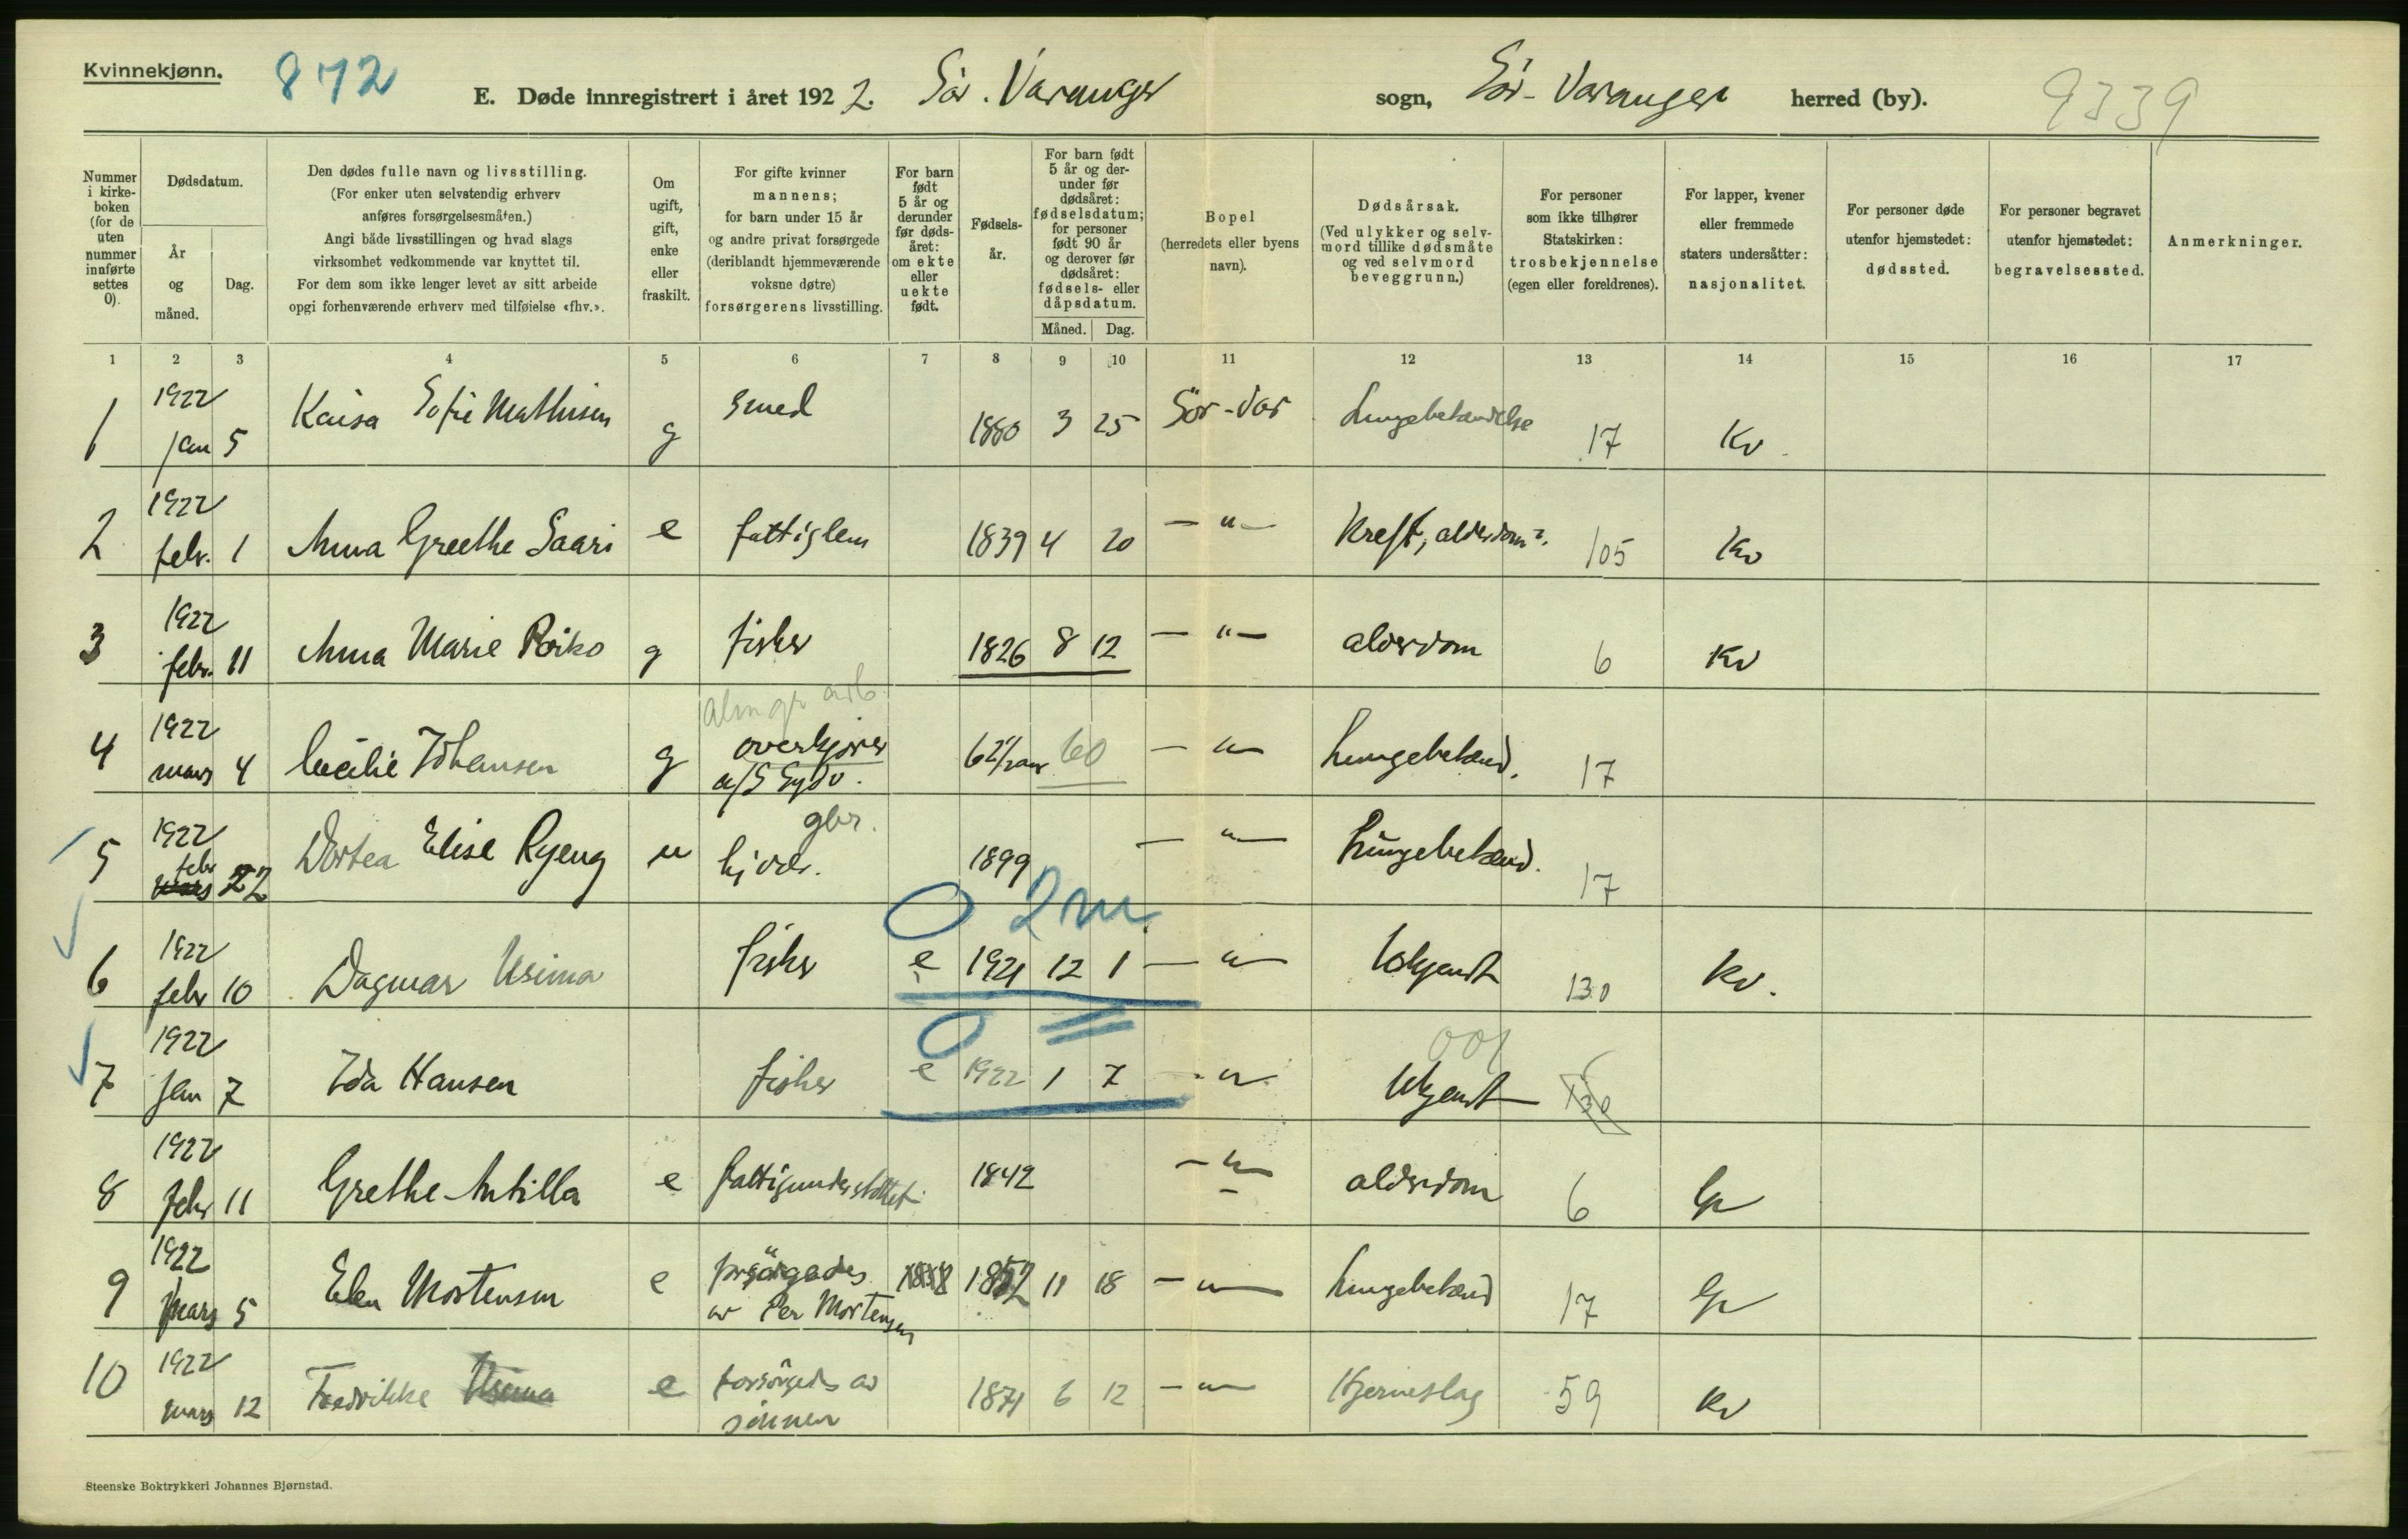 Kvinnekjønn.
872
E. Døde innregistrert i året 1922. Sør-Varanger sogn, Sør-Varanger herred (by).
9339
Nummer i kirke-boken (for de uten nummer innførte settes 0).
Dødsdatum.
År og måned.
Dag.
Den dødes fulle navn og livsstilling.
(For enker uten selvstendig erhverv
anføres forsørgelsesmåten.)
Angi både livsstillingen og hvad slags
virksomhet vedkommende var knyttet til.
For dem som ikke lenger levet av sitt arbeide
opgi forhenværende erhverv med tilføielse «fhv.».
Om ugift, gift, enke eller fraskilt.
For gifte kvinner
mannens;
for barn under 15 år
og andre privat forsørgede
(deriblandt hjemmeværende
voksne døtre)
forsørgerens livsstilling.
For barn født 5 år og derunder før døds-året: om ekte eller uekte født.
Fødsels-år.
For barn født 5 år og der-under før dødsåret: fødselsdatum; for personer født 90 år og derover før dødsåret: fødsels- eller dåpsdatum.
Måned. Dag.
Bopel
(herredets eller byens
navn).
Dødsårsak.
(Ved ulykker og selv-
mord tillike dødsmåte
og ved selvmord
beveggrunn.)
For personer
som ikke tilhører
Statskirken:
trosbekjennelse
(egen eller foreldrenes).
For lapper, kvener
eller fremmede
staters undersåtter:
nasjonalitet.
For personer døde
utenfor hjemstedet:
dødssted.
For personer begravet
utenfor hjemstedet:
begravelsessted.
Anmerkninger.
1 2 3 4 5 6 7 8 9 10 11 12 13 14 15 16 17
1 1922 jan 5 Kaisa Sofie Mathisen g smed 1880 3 25 Sör-Var Lungebetændelse 17 Kv.
2 1922 febr. 1 Anna Greethe Saari e fattiglem 1839 4 20 — " — Kreft, alderdom? 105 Kv
3 1922 febr. 11 Anna Marie Poiko g fisker 1826 8 12 — " — alderdom 6 Kv
almgr arb.
4 1922 mars 4 Cecilie Johansen g overkjører a/S Sydv. 62 år 60 — " — Lungebetænd. 17
gbr.
5 1922 febr 22 Dortea Elise Ryeng u 1899 — " — Lungebetænd. 17
2 m.
6 1922 febr 10 Dagmar Usima fisker e 1921 12 1 — " — Ukjendt 130 Kv.
001
7 1922 jan 7 Ida Hansen fisker e 1922 1 7 — " — Ukjendt 130
8 1922 febr 11 Grethe Antilla e fattigunderstöttet 1842 — " — alderdom 6
9 1922 mars 5 Elen Mortensen e forsörgedes av Per Mortensen 1852 11 18 — " — Lungebetænd 17
10 1922 mars 12 Fredrikke Usima e forsörgedes av sönnen 1871 6 12 — " — Hjerneslag 59 Kv
Steenske Boktrykkeri Johannes Bjørnstad.